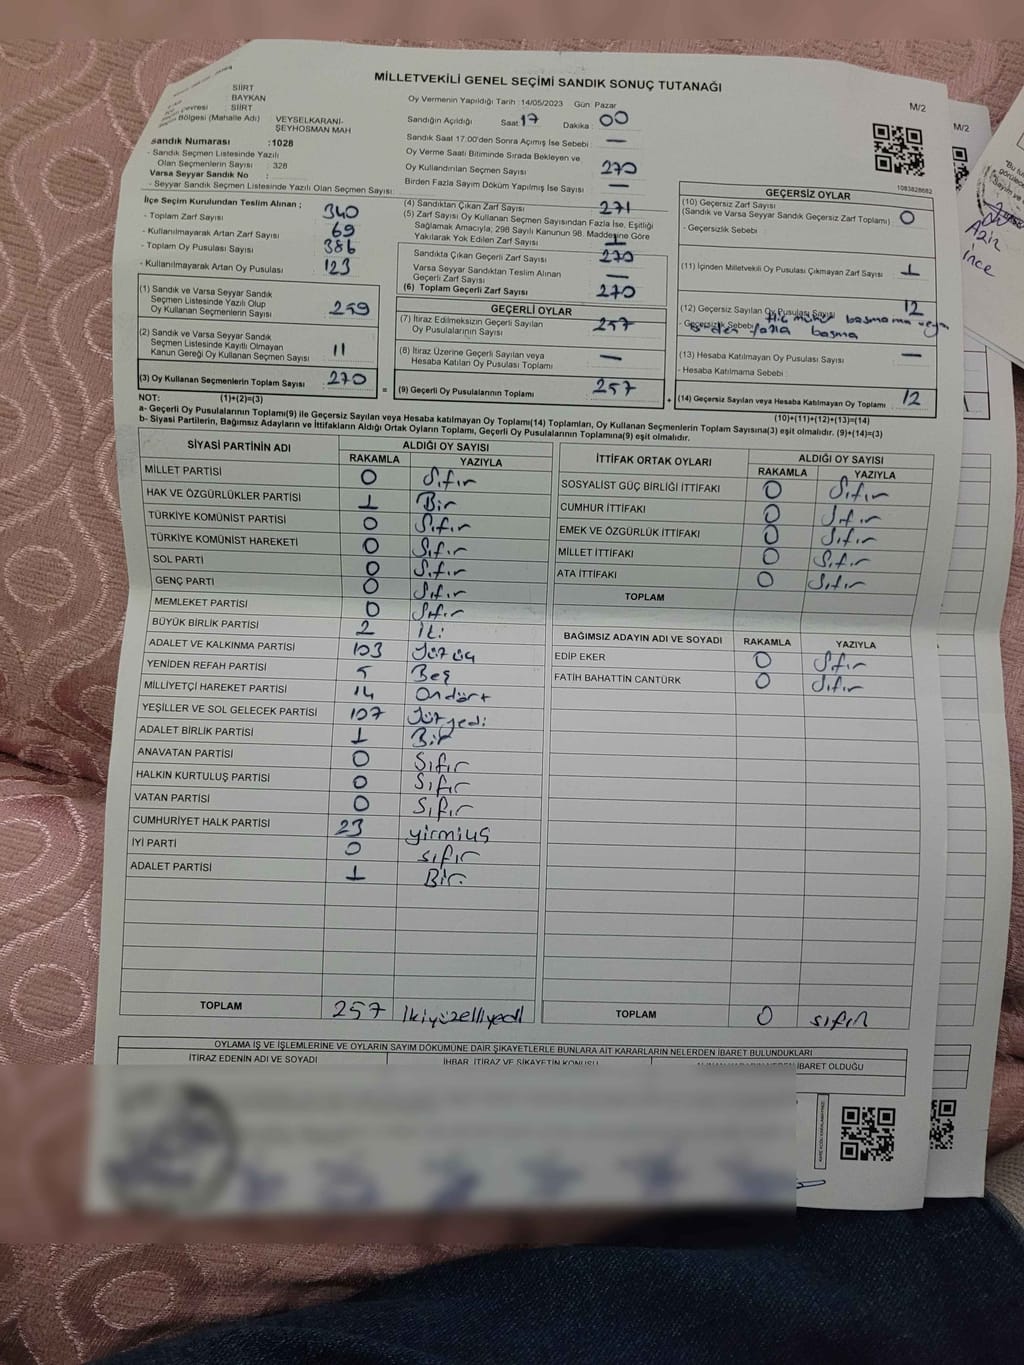 MİLLETVEKİLİ GENEL SEÇİMİ SANDIK SONUÇ TUTANAĞI
M/2
SİİRT
BAYKAN
SİİRT
Bölgesi (Mahalle Adı) VEYSELKARANI-
ŞEYHOSMAN MAH
Sandık Numarası : 1028
- Sandık Seçmen Listesinde Yazılı
Olan Seçmenlerin Sayısı : 328
Varsa Seyyar Sandık No :
- Seyyar Sandık Seçmen Listesinde Yazılı Olan Seçmen Sayısı:
Oy Vermenin Yapıldığı Tarih : 14/05/2023 Gün: Pazar
Sandığın Açıldığı Saat 17 Dakika : 00
Sandık Saat 17:00'den Sonra Açımış İse Sebebi : —
Oy Verme Saati Bitiminde Sırada Bekleyen ve
Oy Kullandırılan Seçmen Sayısı 270
Birden Fazla Sayım Döküm Yapılmış İse Sayısı —
1083828682
İlçe Seçim Kurulundan Teslim Alınan ;
- Toplam Zarf Sayısı 340
- Kullanılmayarak Artan Zarf Sayısı 69
- Toplam Oy Pusulası Sayısı 386
- Kullanılmayarak Artan Oy Pusulası 123
(1) Sandık ve Varsa Seyyar Sandık
Seçmen Listesinde Yazılı Olup
Oy Kullanan Seçmenlerin Sayısı 259
(2) Sandık ve Varsa Seyyar Sandık
Seçmen Listesinde Kayıtlı Olmayan
Kanun Gereği Oy Kullanan Seçmen Sayısı 11
(3) Oy Kullanan Seçmenlerin Toplam Sayısı 270
(4) Sandıktan Çıkan Zarf Sayısı 271
(5) Zarf Sayısı Oy Kullanan Seçmen Sayısından Fazla İse, Eşitliği
Sağlamak Amacıyla, 298 Sayılı Kanunun 98. Maddesine Göre
Yakılarak Yok Edilen Zarf Sayısı 1
Sandıkta Çıkan Geçerli Zarf Sayısı 270
Varsa Seyyar Sandıktan Teslim Alınan
Geçerli Zarf Sayısı —
(6) Toplam Geçerli Zarf Sayısı 270
GEÇERLİ OYLAR
(7) İtiraz Edilmeksizin Geçerli Sayılan
Oy Pusulalarının Sayısı 257
(8) İtiraz Üzerine Geçerli Sayılan veya
Hesaba Katılan Oy Pusulası Toplamı —
= (9) Geçerli Oy Pusulalarının Toplamı 257
GEÇERSİZ OYLAR
(10) Geçersiz Zarf Sayısı
(Sandık ve Varsa Seyyar Sandık Geçersiz Zarf Toplamı) 0
- Geçersizlik Sebebi :
(11) İçinden Milletvekili Oy Pusulası Çıkmayan Zarf Sayısı 1
(12) Geçersiz Sayılan Oy Pusulası Sayısı 12
- Geçersizlik Sebebi Hiç mühür basmama veya
birden fazla basma
(13) Hesaba Katılmayan Oy Pusulası Sayısı —
- Hesaba Katılmama Sebebi :
+ (14) Geçersiz Sayılan veya Hesaba Katılmayan Oy Toplamı 12
NOT: (1)+(2)=(3)
(10)+(11)+(12)+(13)=(14)
a- Geçerli Oy Pusulalarının Toplamı(9) ile Geçersiz Sayılan veya Hesaba katılmayan Oy Toplamı(14) Toplamları, Oy Kullanan Seçmenlerin Toplam Sayısına(3) eşit olmalıdır. (9)+(14)=(3)
b- Siyasi Partilerin, Bağımsız Adayların ve İttifakların Aldığı Ortak Oyların Toplamı, Geçerli Oy Pusulalarının Toplamına(9) eşit olmalıdır.
SİYASİ PARTİNİN ADI ALDIĞI OY SAYISI
RAKAMLA YAZIYLA
MİLLET PARTİSİ 0 Sıfır
HAK VE ÖZGÜRLÜKLER PARTİSİ 1 Bir
TÜRKİYE KOMÜNİST PARTİSİ 0 Sıfır
TÜRKİYE KOMÜNİST HAREKETİ 0 Sıfır
SOL PARTİ 0 Sıfır
GENÇ PARTİ 0 Sıfır
MEMLEKET PARTİSİ 0 Sıfır
BÜYÜK BİRLİK PARTİSİ 2 İki
ADALET VE KALKINMA PARTİSİ 103 Yüz üç
YENİDEN REFAH PARTİSİ 5 Beş
MİLLİYETÇİ HAREKET PARTİSİ 14 Ondört
YEŞİLLER VE SOL GELECEK PARTİSİ 107 Yüz yedi
ADALET BİRLİK PARTİSİ 1 Bir
ANAVATAN PARTİSİ 0 Sıfır
HALKIN KURTULUŞ PARTİSİ 0 Sıfır
VATAN PARTİSİ 0 Sıfır
CUMHURİYET HALK PARTİSİ 23 yirmiüç
İYİ PARTİ 0 sıfır
ADALET PARTİSİ 1 Bir.
TOPLAM 257 İkiyüzelliyedi
İTTİFAK ORTAK OYLARI ALDIĞI OY SAYISI
RAKAMLA YAZIYLA
SOSYALİST GÜÇ BİRLİĞİ İTTİFAKI 0 Sıfır
CUMHUR İTTİFAKI 0 Sıfır
EMEK VE ÖZGÜRLÜK İTTİFAKI 0 Sıfır
MİLLET İTTİFAKI 0 Sıfır
ATA İTTİFAKI 0 Sıfır
TOPLAM
BAĞIMSIZ ADAYIN ADI VE SOYADI RAKAMLA YAZIYLA
EDİP EKER 0 Sıfır
FATİH BAHATTİN CANTÜRK 0 Sıfır
TOPLAM 0 sıfır
OYLAMA İŞ VE İŞLEMLERİNE VE OYLARIN SAYIM DÖKÜMÜNE DAİR ŞİKAYETLERLE BUNLARA AİT KARARLARIN NELERDEN İBARET BULUNDUKLARI
İTİRAZ EDENİN ADI VE SOYADI İHBAR, İTİRAZ VE ŞİKAYETİN KONUSU İBARET OLDUĞU
M/2
Aziz
ince